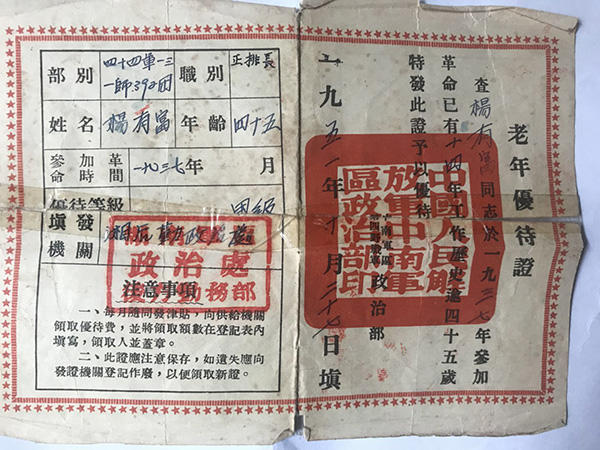 老年優待證
查楊有富同志於一九三七年參加
革命已有十四年工作歷史逾四十五歲
特發此證予以優待
中南軍區
政治部
一九五一年十月二十七日填
中國人民解
放軍中南軍
區政治部印
部別 四十四軍一三一師392团 職別 正排長
姓名 楊有富 年齡 四十五
參加革命時間 一九三七年 月
優待等級 甲級
填發機關
政治處
勤務部
注意事項
一、每月隨同發津貼,向供給機關
領取優待費,並將領取額數在登記表內
填寫,領取人並蓋章。
二、此證應注意保存,如遺失應向
發證機關登記作廢,以便領取新證。